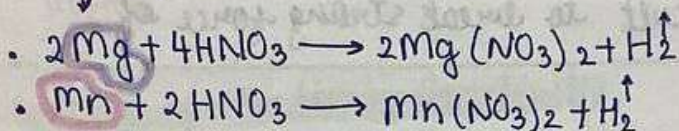 • 2Mg + 4HNO₃ ⟶ 2Mg(NO₃)₂ + H₂↑
• Mn + 2HNO₃ ⟶ Mn(NO₃)₂ + H₂↑